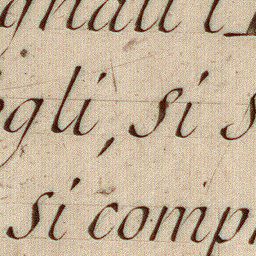 gnati l
gli, si s
si comp